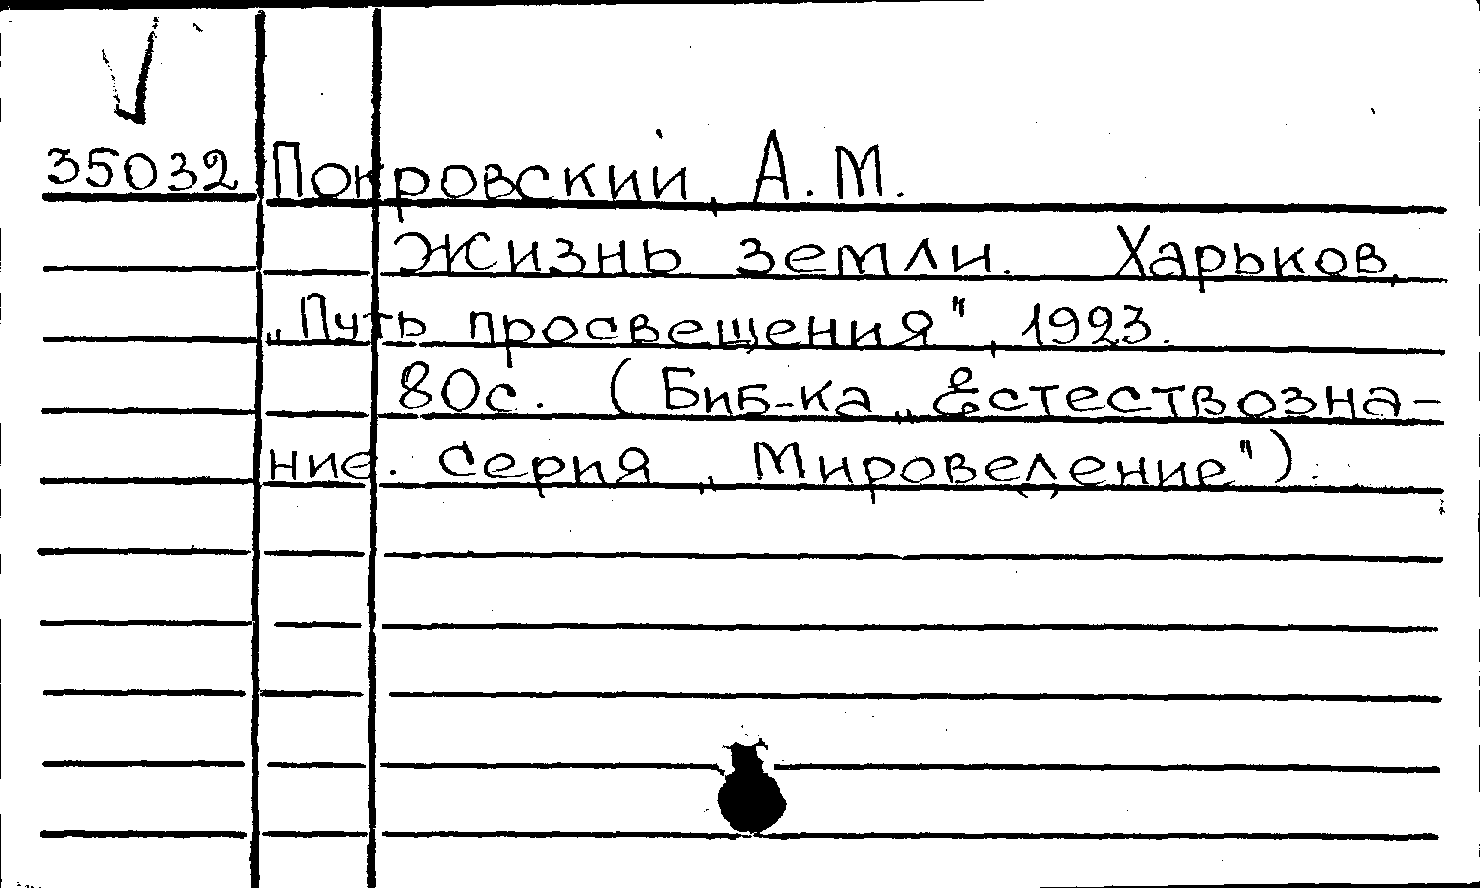 35032 Покровский, А.М.
Жизнь земли. Харьков,
„Путь просвещения", 1923.
80с. (Биб-ка „Естествозна-
ние. Серия „Мироведение").